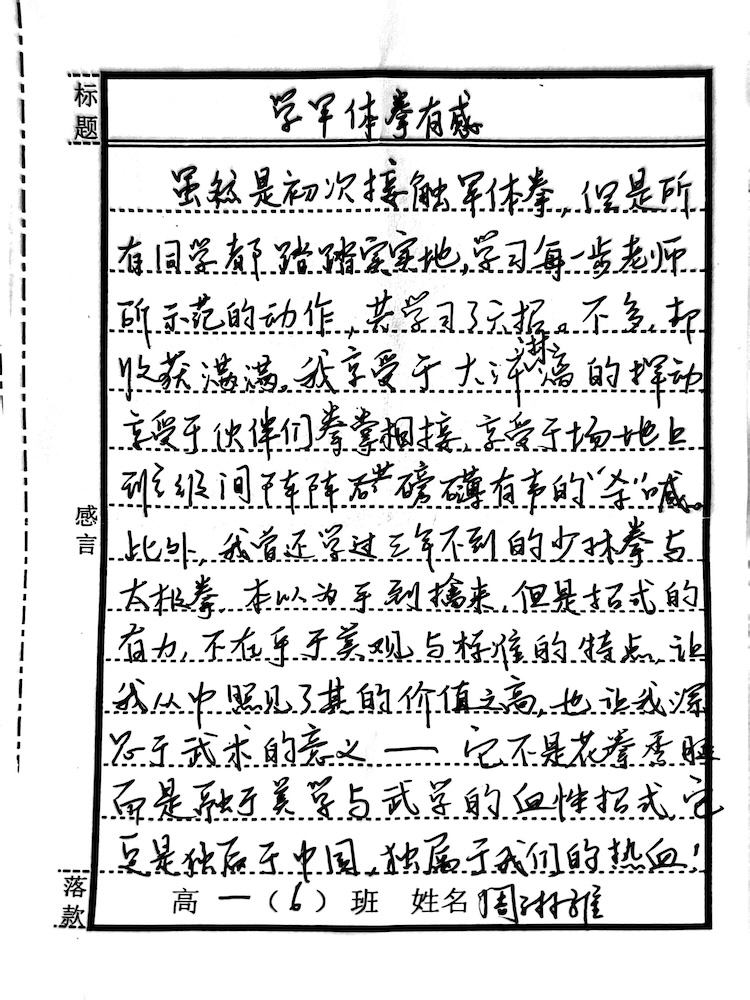 标题
学军体拳有感
虽然是初次接触军体拳，但是所
有同学都踏踏实实地，学习每一步老师
所示范的动作，共学习了六招。不多，却
收获满满。我享受于大汗淋漓的挥动，
享受于伙伴们拳掌相接，享受于场地上
班级间阵阵磅礴有声的“杀”喊。
此外，我曾还学过三年不到的少林拳与
太极拳，本以为手到擒来，但是招式的
有力，不在乎于美观与标准的特点，让
我从中照见了其的价值之高，也让我深
思于武术的意义——它不是花拳秀腿
而是融于美学与武学的血性招式，它
更是独属于中国，独属于我们的热血！
感言
落款
高一（6）班 姓名周